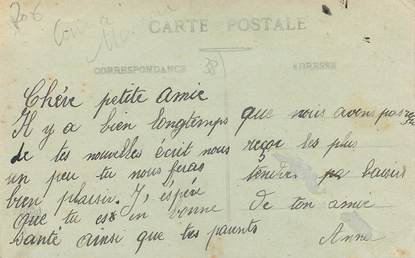 206
CARTE POSTALE
CORRESPONDANCE
38
ADRESSE
Chére petite amie
Il y a bien longtemps que nous avons pas
de tes nouvelles écrit nous
un peu tu nous feras
bien plaisir. J'éspére
que tu est en bonne
santé ainsi que tes parents
reçoi les plus
tendres baisers
de ton amie
Anna